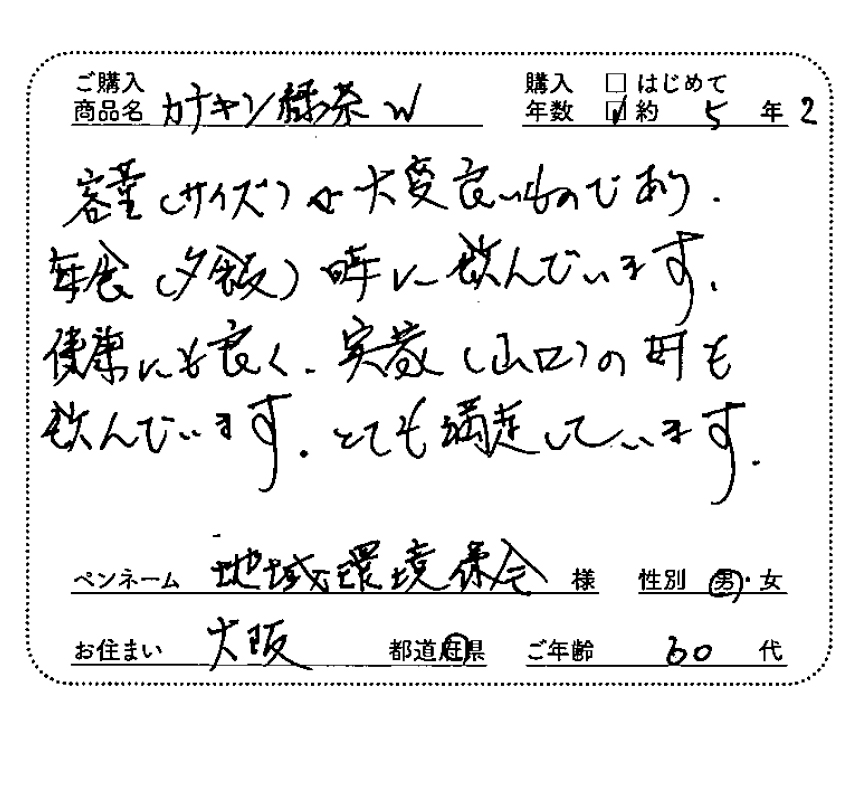 ご購入
商品名 カナキン緑茶W
購入 □ はじめて
年数 ☑ 約 5 年 2
容量(サイズ)は大変良いものであり.
毎食(夕飯)時に飲んでいます.
健康にも良く、実家(山口)の母も
飲んでいます. とても満足しています.
ペンネーム 地域環境保全 様 性別 男・女
お住まい 大阪 都道府県 ご年齢 60 代